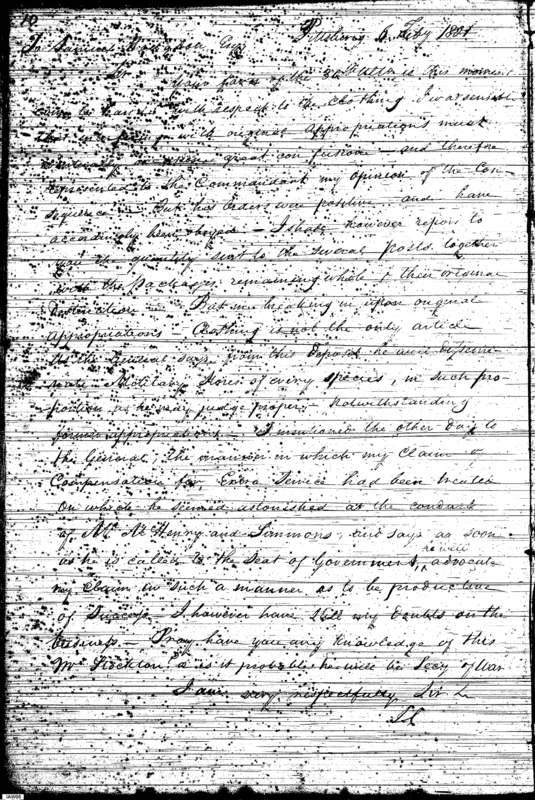 Pittsburg 6 Feby 1801
To Samuel Hodgdon Esqr
Sir
Your favor of the 30th Ulto is this morning
with respect to the Clothing I was sensible
that with original appropriations must
great confusion — and therefore
represented to the Commandant my opinion of the Con-
sequence — But his Orders were positive and have
accordingly been obeyed — I shall however report to
you the quantity sent to the several posts together
with the packages remaining whole & their original
destination — But in breaking in upon original
appropriations Clothing is not the only article
As the General says from this deposit he will dissemi-
nate Military Stores of every species, in such pro-
portion as he may judge proper: Notwithstanding
former appropriations — I mentioned the other day to
the General, the manner in which my Claim of
Compensation for Extra Service had been treated
On which he seemed astonished at the conduct
of Mr McHenry and Simmons, and says as soon
as he is called to the Seat of Government, he will advocate
my Claim in such a manner as to be productive
of Success I however have still my doubts on the
business — Pray have you any knowledge of this
Mr Stockton, & is it probable he will be Secy of War
I am very respectfully Sir &
IAW06